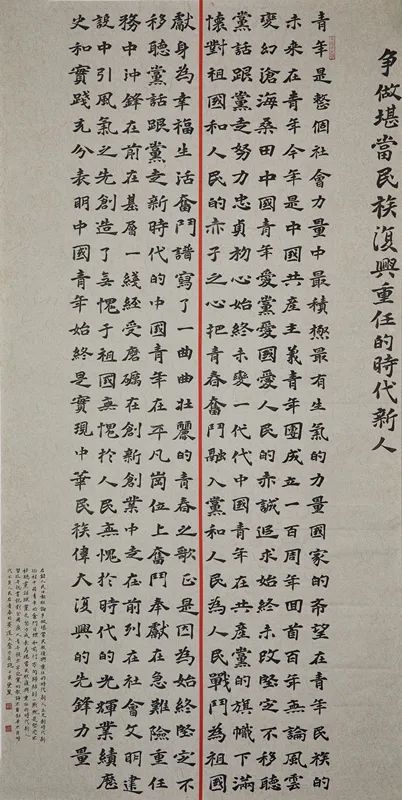 争做堪當民族復興重任的時代新人
青年是整個社會力量中最積極最有生氣的力量國家的希望在青年民族的
未來在青年今年是中國共產主義青年團成立一百周年回首百年無論風雲
變幻滄海桑田中國青年愛黨愛國愛人民的赤誠追求始終未改堅定不移聽
黨話跟黨走努力忠貞初心始終未變一代代中國青年在共產黨的旗幟下滿
懷對祖國和人民的赤子之心把青春奮鬥融入黨和人民為人民戰為祖國
獻身為幸福生活奮鬥譜寫了一曲曲壯麗的青春之歌正是因為始終堅定不
移聽黨話跟黨走新時代的中國青年在平凡崗位上奮鬥奉獻在急難險重任
務中沖鋒在前在基層一綫經受磨礪在創新創業中走在前列在社會文明建
設中引風氣之先創造了無愧于祖國無愧於人民無愧於時代的光輝業績歷
史和實踐充分表明中國青年始終是實現中華民族偉大復興的先鋒力量